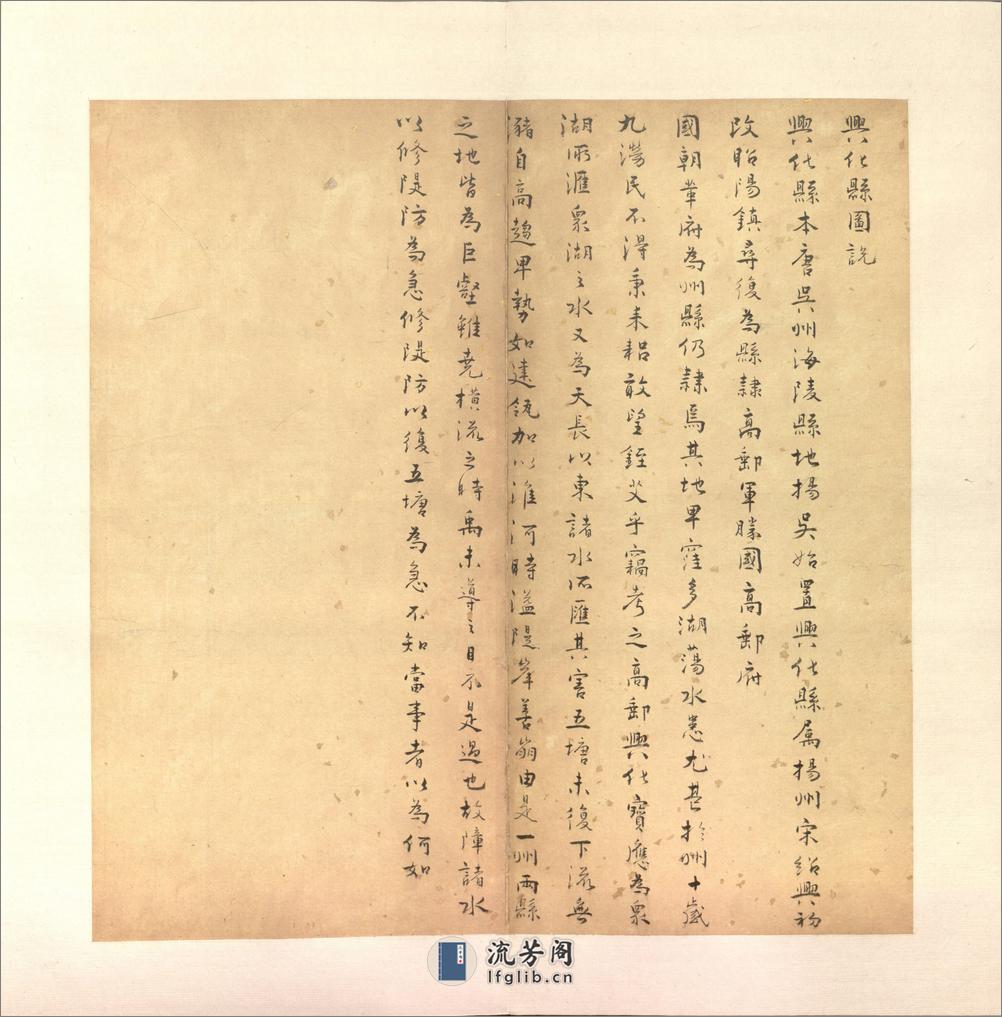 興化縣圖説
興化縣本唐吳州海陵縣地揚吳始置興化縣屬揚州宋紹興初
改昭陽鎮尋復為縣隷高郵軍勝國高郵府
國朝革府為州縣仍隷焉其地卑窪多湖蕩水患尤甚扵州十歲
九澇民不得秉耒耜敢望銍艾乎竊考之高郵興化寶應為衆
湖所滙衆湖之水又為天長以東諸水所匯其害五塘未復下流無
瀦自高趨卑勢如建瓴加以淮河時溢隄岸善崩由是一州兩縣
之地皆為巨壑雖堯橫流之時禹未導之日不是過也故障諸水
以修隄防為急修隄防以復五塘為急不知當事者以為何如
流芳阁
lfglib.cn